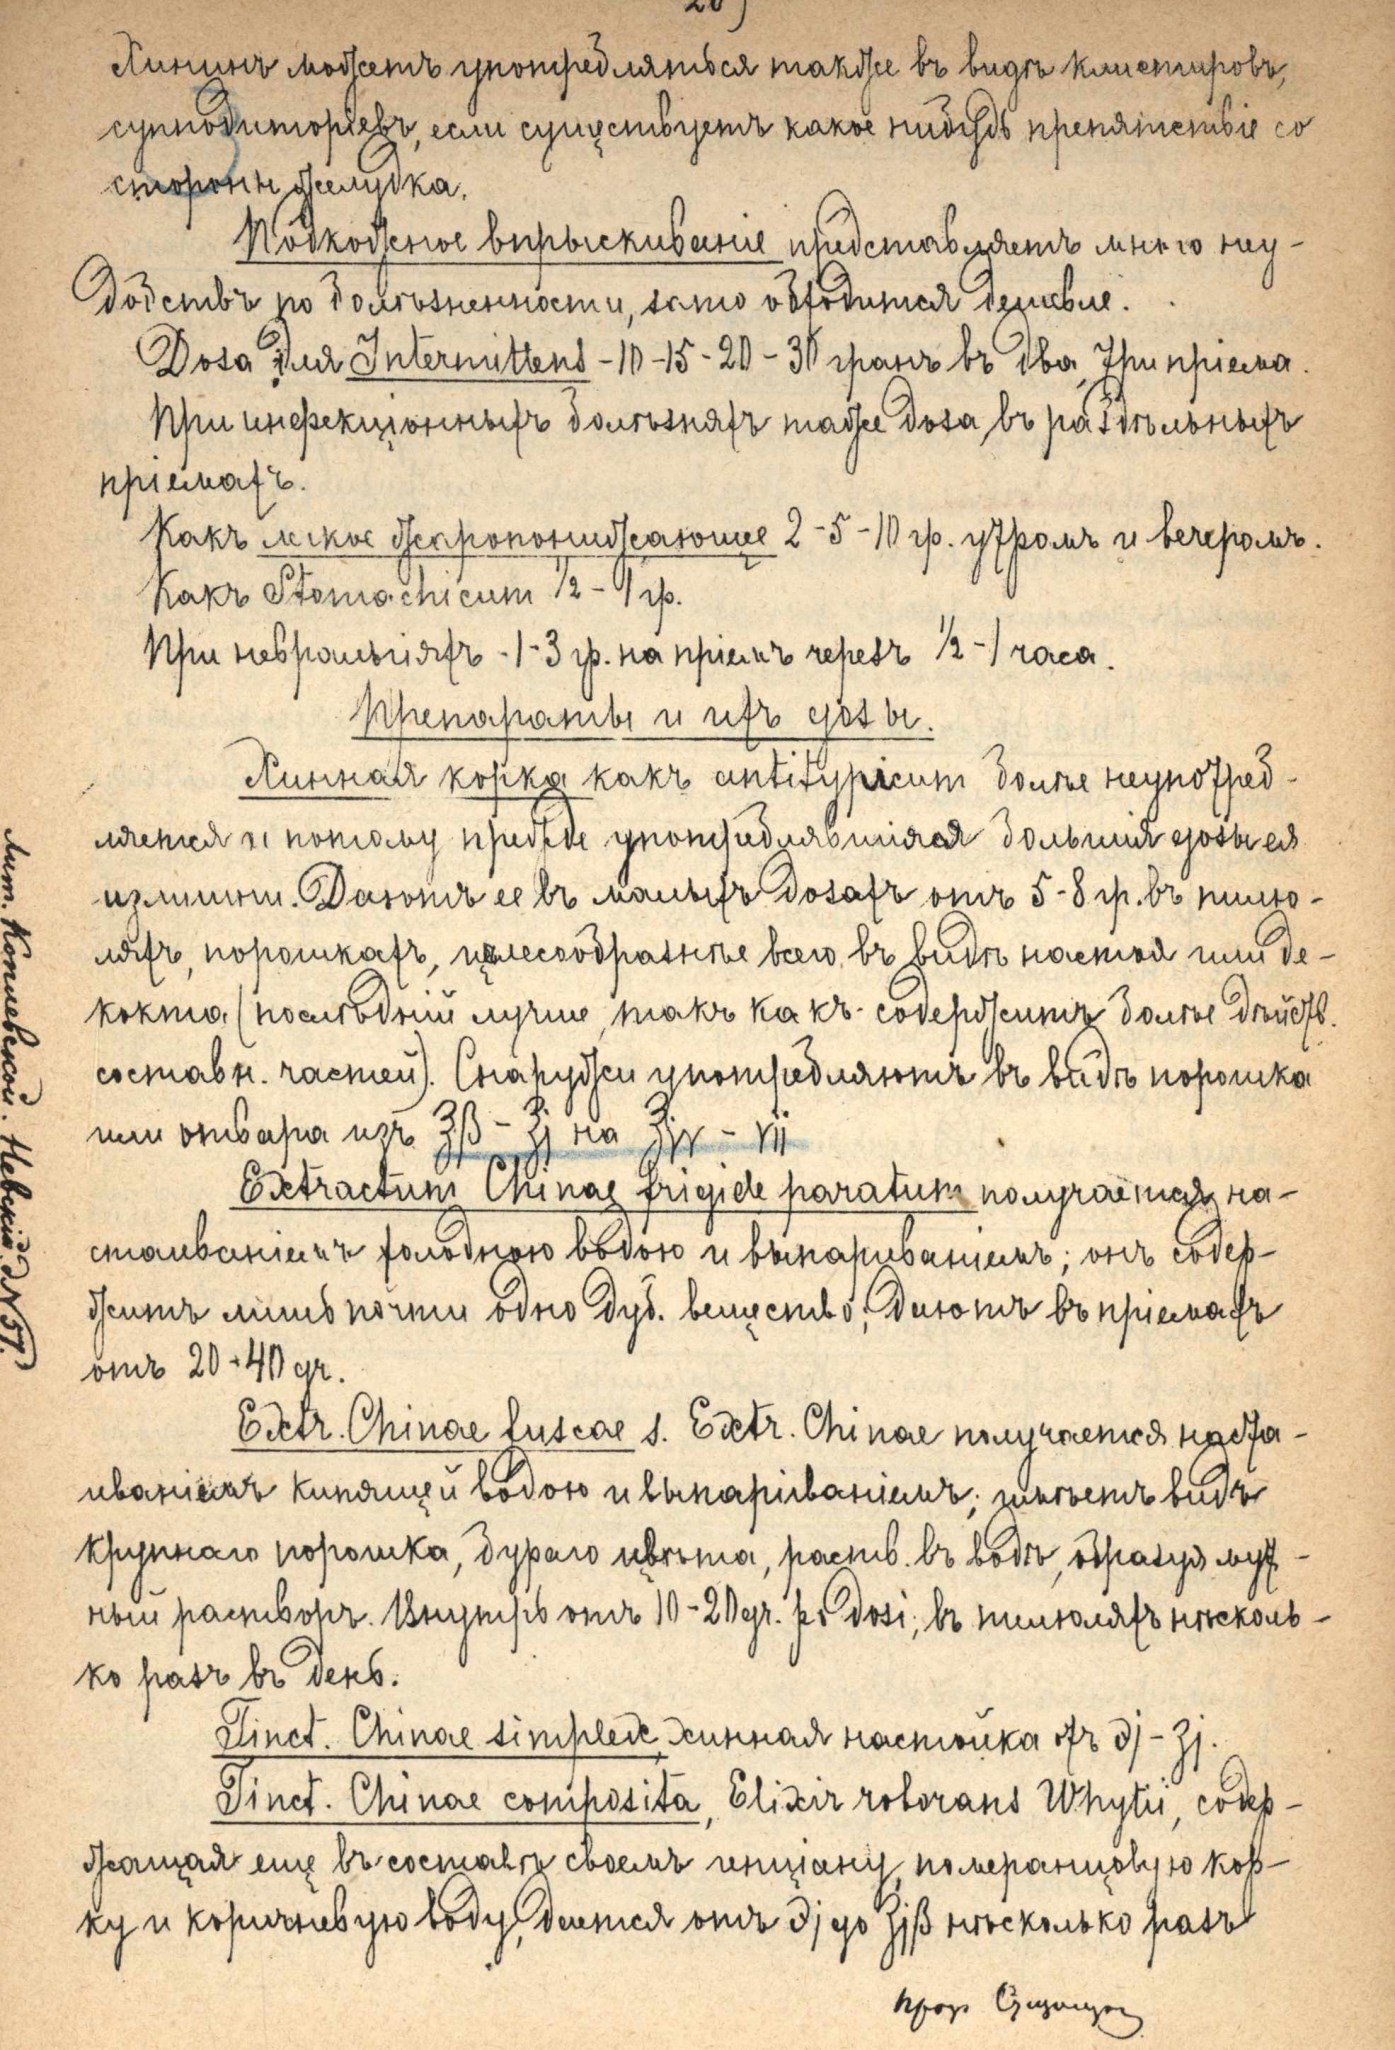 Хининъ можетъ употребляться также въ видѣ клистировъ,
суппозиторіевъ, если существуетъ какое нибудь препятствіе со
стороны желудка.
Подкожное впрыскиваніе представляетъ много неу-
добствъ по болѣзненности, зато обходится дешевле.
Dosa для Intermittens - 10 - 15 - 20 - 30 гранъ въ два, три пріема.
При инфекціонныхъ болѣзняхъ таже dosa, въ раздѣльныхъ
пріемахъ.
Какъ легкое жаропонижающее 2 - 5 - 10 гр. утромъ и вечеромъ.
Какъ Stomachicum ½ - 1 гр.
При невралгіяхъ - 1 - 3 гр. на пріемъ черезъ ½ - 1 часа.
Препараты и ихъ дозы.
Хинная корка какъ antitypicum болѣе неупотреб-
ляется и потому прежде употреблявшіяся большія дозы ея
излишни. Даютъ ее въ малыхъ dosaхъ отъ 5 - 8 гр. въ пилю-
ляхъ, порошкахъ, цѣлесообразнѣе всего въ видѣ настоя или де-
кокта (послѣдній лучше, такъ какъ содержитъ болѣе дѣйств.
составн. частей). Снаружи употребляютъ въ видѣ порошка
или отвара изъ ℥β - ℥j на ℥jv - vjj
Extractum Chinae frigide paratum получается на-
стаиваніемъ холодною водою и выпариваніемъ; онъ содер-
житъ лишь почти одно дуб. вещество; даютъ въ пріемахъ
отъ 20 - 40 gr.
Extr. Chinae fuscae s. Extr. Chinae получается наста-
иваніемъ кипящей водою и выпариваніемъ; имѣетъ видъ
крупнаго порошка, бураго цвѣта, раств. въ водѣ, образуя мут-
ный растворъ. Внутрь отъ 10 - 20 gr. pro dosi, въ пилюляхъ нѣсколь-
ко разъ въ день.
Tinct. Chinae simplex, хинная настойка отъ ℈j - ʒj.
Tinct. Chinae composita, Elixir roborans Whytii, содер-
жащая еще въ составѣ своемъ генціану, померанцовую кор-
ку и коричневую воду, дается отъ ℈j до ʒjβ нѣсколько разъ
проф.
Лит. Копиевской. Невскій д. № 57.